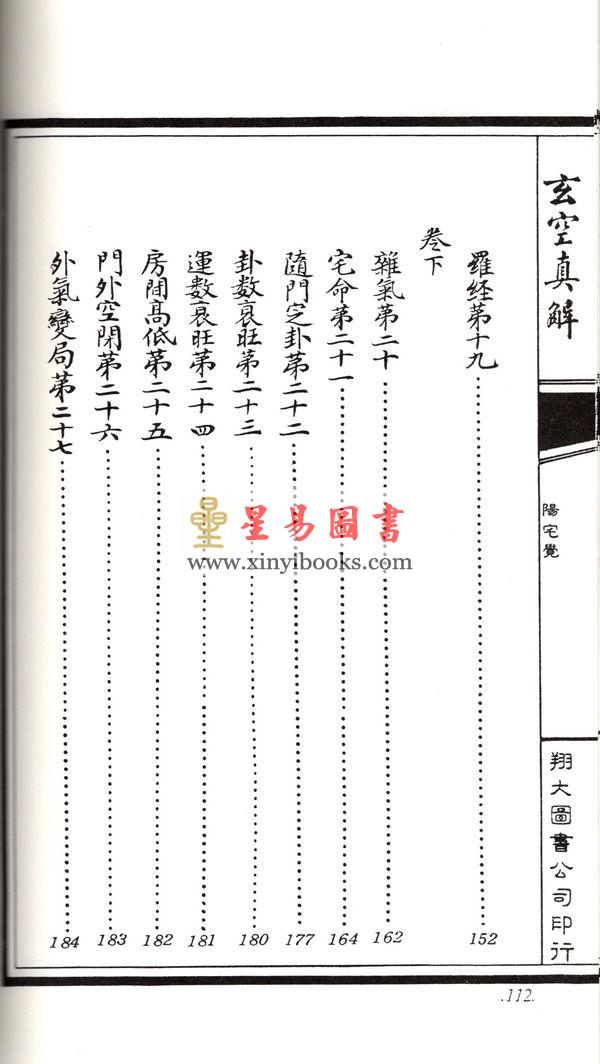 玄空真解
陽宅覺
翔大圖書公司印行
羅经苐十九 152
卷下
雜氣苐二十 162
宅命苐二十一 164
隨門定卦苐二十二 177
卦数衰旺苐二十三 180
運数衰旺苐二十四 181
房間高低苐二十五 182
門外空閉苐二十六 183
外氣變局苐二十七 184
星易圖書
www.xinyibooks.com
.112.